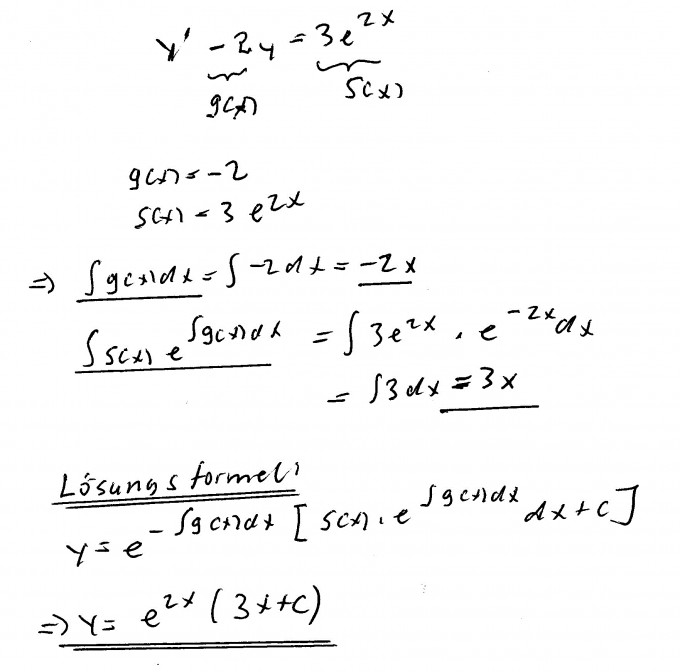 y' - 2y = 3e^{2x}
g(x) s(x)
g(x) = -2
s(x) = 3 e^{2x}
⇒ ∫g(x)dx = ∫-2dx = -2x
∫s(x) e^{∫g(x)dx} = ∫3e^{2x} · e^{-2x}dx
= ∫3dx = 3x
Lösungsformel:
y = e^{-∫g(x)dx} [ s(x) · e^{∫g(x)dx} dx + C ]
⇒ y = e^{2x} (3x+C)